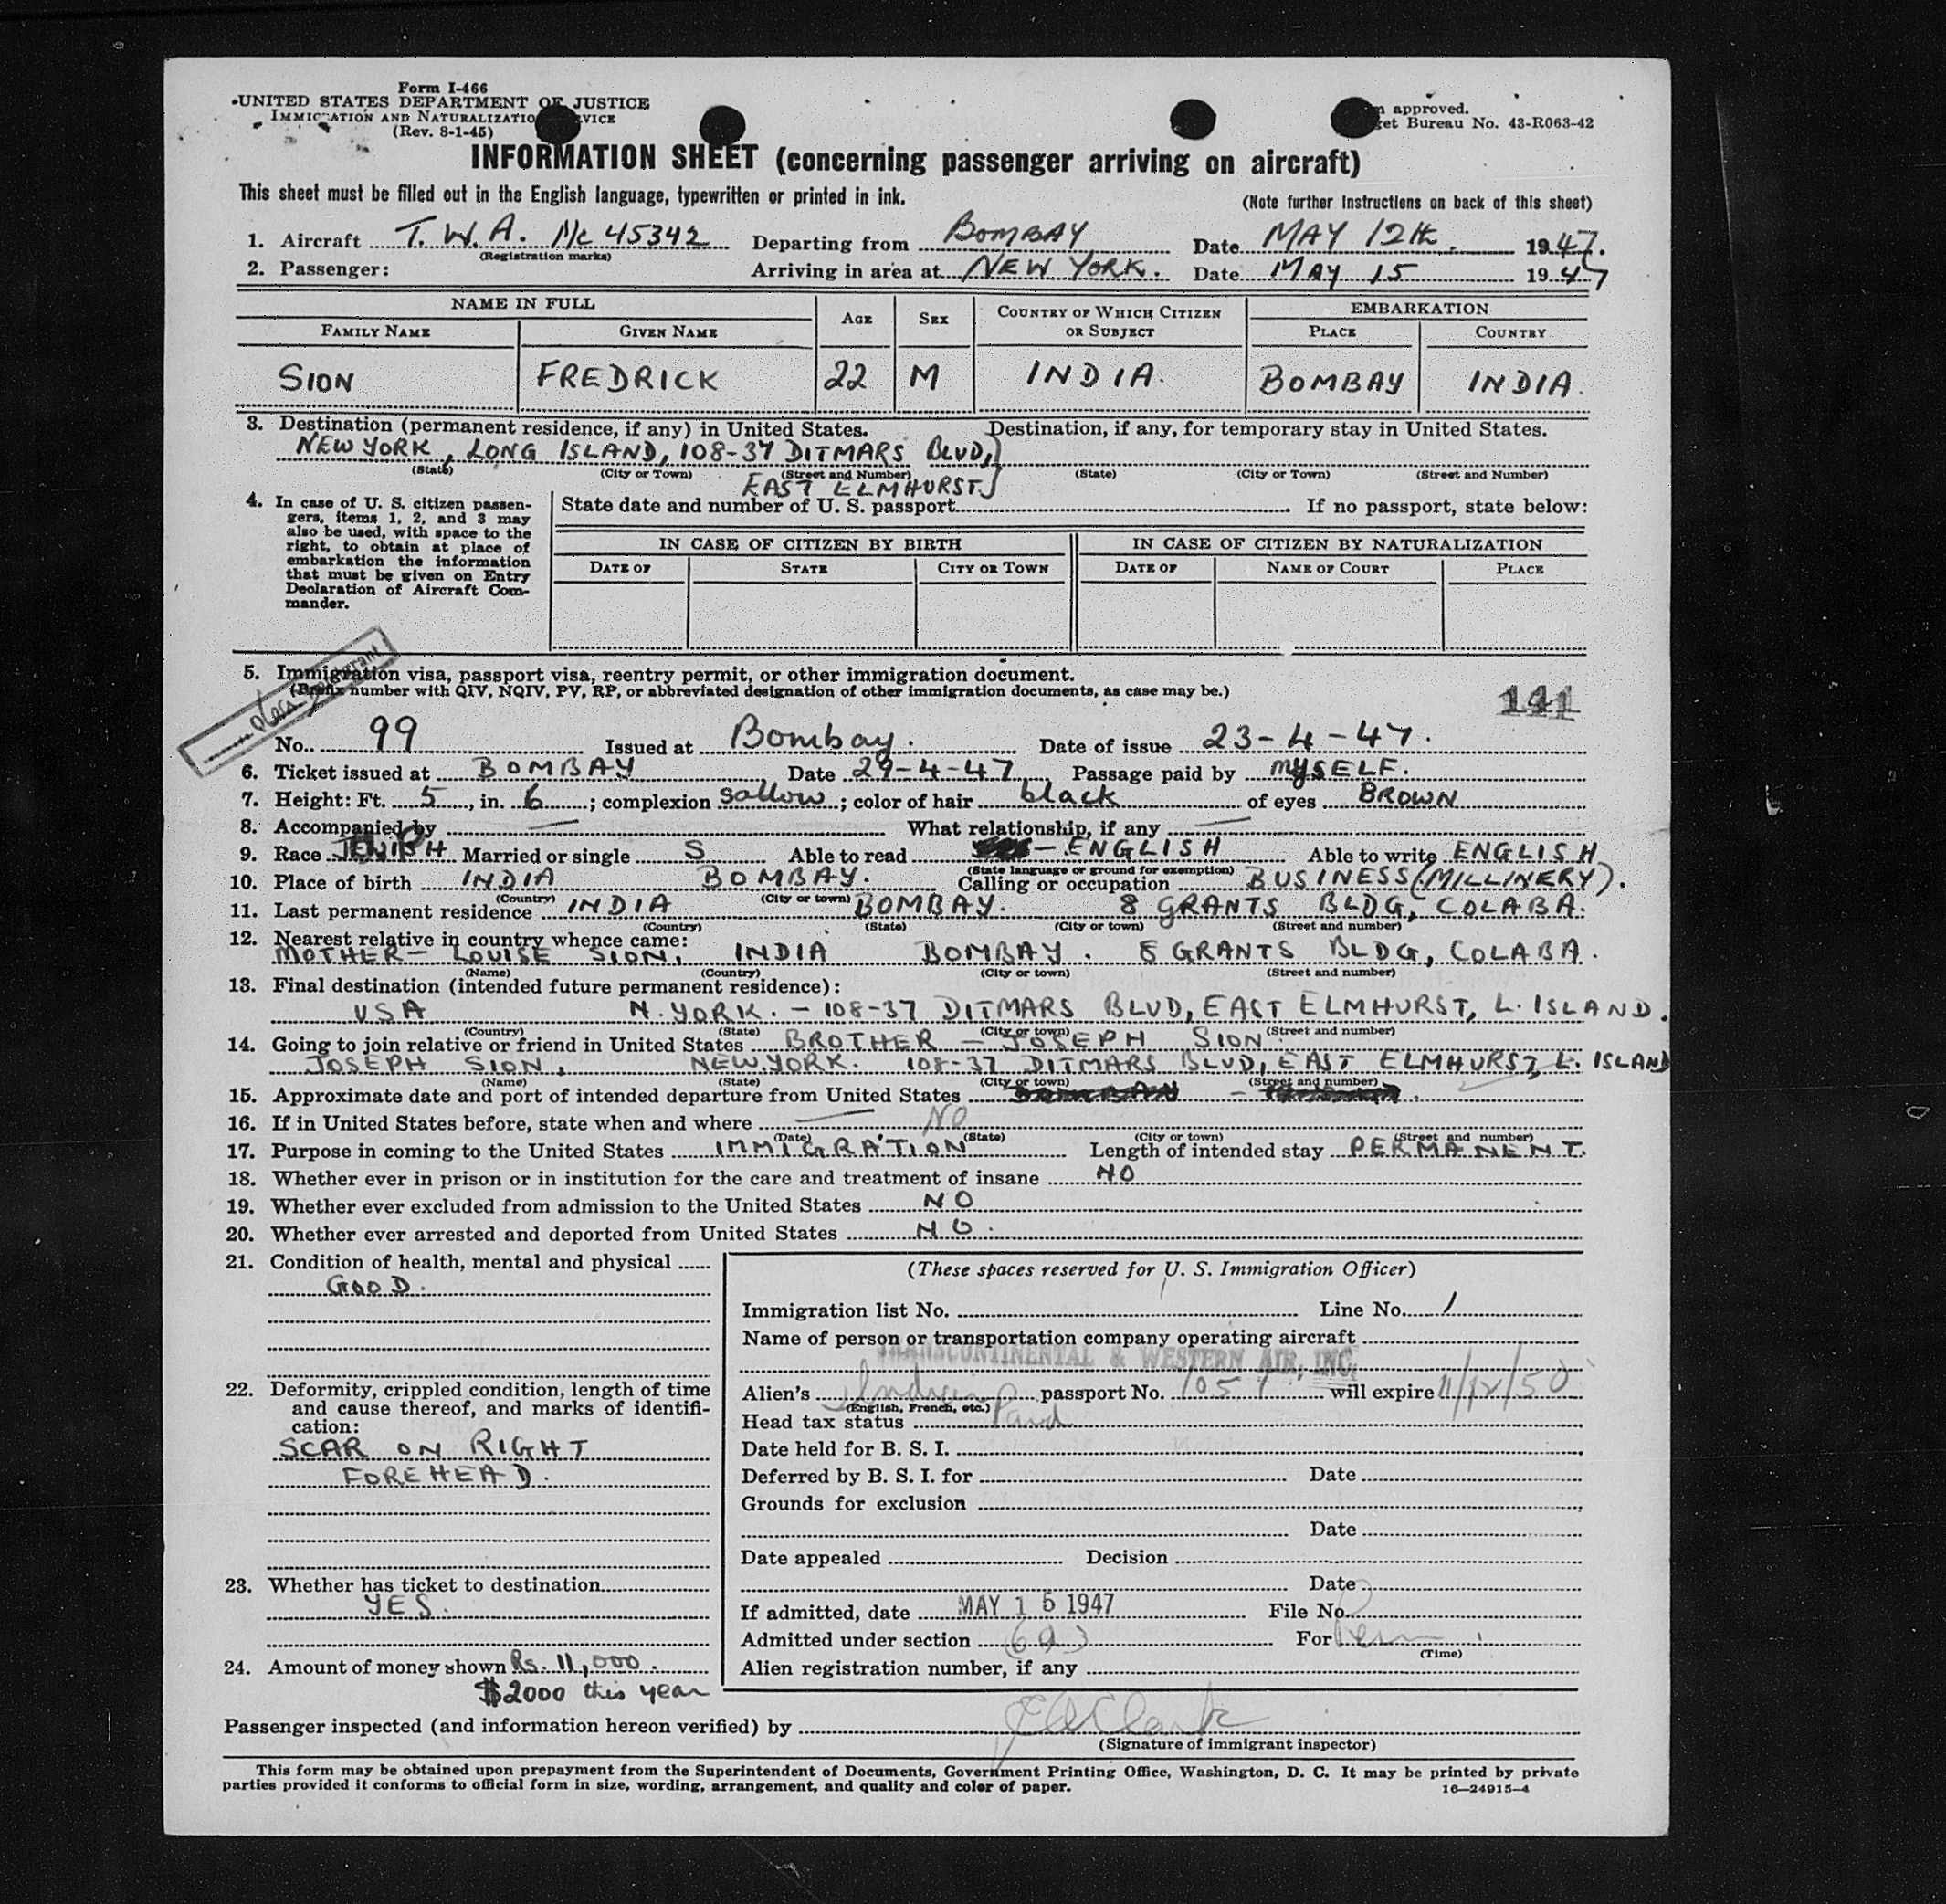 Form I-466
UNITED STATES DEPARTMENT OF JUSTICE
IMMIGRATION AND NATURALIZATION SERVICE
(Rev. 8-1-45)
approved.
Bureau No. 43-R063-42
INFORMATION SHEET (concerning passenger arriving on aircraft)
This sheet must be filled out in the English language, typewritten or printed in ink.
(Note further instructions on back of this sheet)
1. Aircraft T. W. A. Nc 45342 Departing from BOMBAY Date MAY 12th. 1947.
(Registration marks)
2. Passenger: Arriving in area at NEW YORK. Date MAY 15 1947
NAME IN FULL AGE SEX COUNTRY OF WHICH CITIZEN OR SUBJECT EMBARKATION
FAMILY NAME GIVEN NAME PLACE COUNTRY
SION FREDRICK 22 M INDIA. BOMBAY INDIA.
3. Destination (permanent residence, if any) in United States. Destination, if any, for temporary stay in United States.
NEW YORK, LONG ISLAND, 108-37 DITMARS BLVD,
(State) (City or Town) (Street and Number) (State) (City or Town) (Street and Number)
EAST ELMHURST
4. In case of U. S. citizen passen-
gers, items 1, 2, and 3 may
also be used, with space to the
right, to obtain at place of
embarkation the information
that must be given on Entry
Declaration of Aircraft Com-
mander.
State date and number of U. S. passport If no passport, state below:
IN CASE OF CITIZEN BY BIRTH IN CASE OF CITIZEN BY NATURALIZATION
DATE OF STATE CITY OR TOWN DATE OF NAME OF COURT PLACE
5. Immigration visa, passport visa, reentry permit, or other immigration document.
(Prefix number with QIV, NQIV, PV, RP, or abbreviated designation of other immigration documents, as case may be.)
141
No. 99 Issued at Bombay. Date of issue 23-4-47.
6. Ticket issued at BOMBAY Date 29-4-47 Passage paid by MYSELF.
7. Height: Ft. 5, in. 6; complexion sallow; color of hair black of eyes BROWN
8. Accompanied by — What relationship, if any —
9. Race JEWISH Married or single S Able to read — ENGLISH Able to write ENGLISH
(State language or ground for exemption)
10. Place of birth INDIA BOMBAY. Calling or occupation BUSINESS (MILLINERY).
(Country) (City or town)
11. Last permanent residence INDIA BOMBAY. 8 GRANTS BLDG, COLABA.
(Country) (State) (City or town) (Street and number)
12. Nearest relative in country whence came:
MOTHER- LOUISE SION, INDIA BOMBAY. 8 GRANTS BLDG, COLABA.
(Name) (Country) (City or town) (Street and number)
13. Final destination (intended future permanent residence):
USA N. YORK. - 108-37 DITMARS BLVD, EAST ELMHURST, L. ISLAND.
(Country) (State) (City or town) (Street and number)
14. Going to join relative or friend in United States BROTHER - JOSEPH SION
JOSEPH SION, NEW YORK. 108-37 DITMARS BLVD, EAST ELMHURST, L. ISLAND
(Name) (State) (City or town) (Street and number)
15. Approximate date and port of intended departure from United States
16. If in United States before, state when and where — NO
(Date) (State) (City or town) (Street and number)
17. Purpose in coming to the United States IMMIGRATION Length of intended stay PERMANENT.
18. Whether ever in prison or in institution for the care and treatment of insane NO
19. Whether ever excluded from admission to the United States NO
20. Whether ever arrested and deported from United States NO.
21. Condition of health, mental and physical
GOOD.
22. Deformity, crippled condition, length of time
and cause thereof, and marks of identifi-
cation:
SCAR ON RIGHT
FOREHEAD.
23. Whether has ticket to destination
YES.
24. Amount of money shown Rs. 11,000.
$2000 this year
(These spaces reserved for U. S. Immigration Officer)
Immigration list No. Line No. 1
Name of person or transportation company operating aircraft
TRANSCONTINENTAL & WESTERN AIR, INC.
Alien's Indian passport No. 1057 will expire 11/12/50
(English, French, etc.)
Head tax status Paid
Date held for B. S. I.
Deferred by B. S. I. for Date
Grounds for exclusion
Date
Date appealed Decision
Date
If admitted, date MAY 15 1947 File No.
Admitted under section (6a3) For Perm
(Time)
Alien registration number, if any
Passenger inspected (and information hereon verified) by Clark
(Signature of immigrant inspector)
This form may be obtained upon prepayment from the Superintendent of Documents, Government Printing Office, Washington, D. C. It may be printed by private
parties provided it conforms to official form in size, wording, arrangement, and quality and color of paper.
16—24915-4